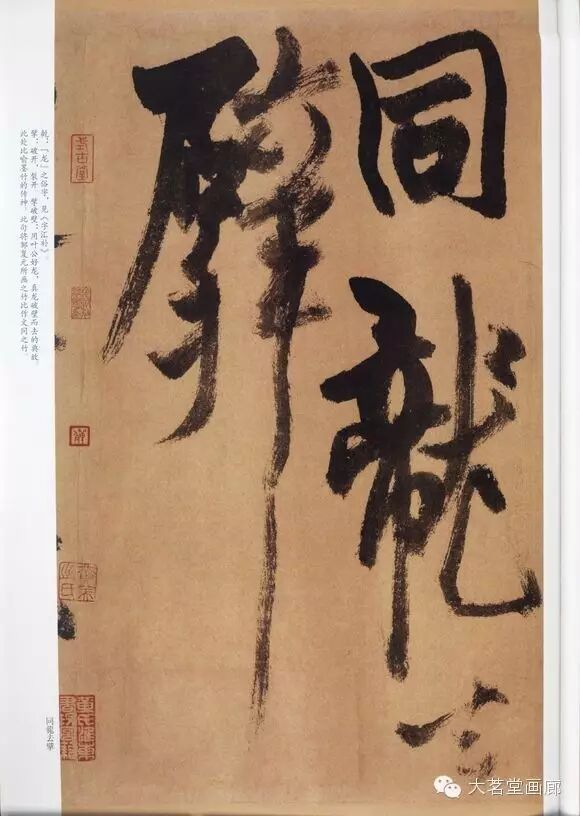 同龍去
擘
：「龙」之俗字，见《字汇补》。
擘：破开，裂开。擘破壁：用叶公好龙，真龙破壁而去的典故，
此处比喻墨竹的传神。此句将郭复元所画之竹比作文同之竹。
式古堂
同龍去擘
大茗堂画廊